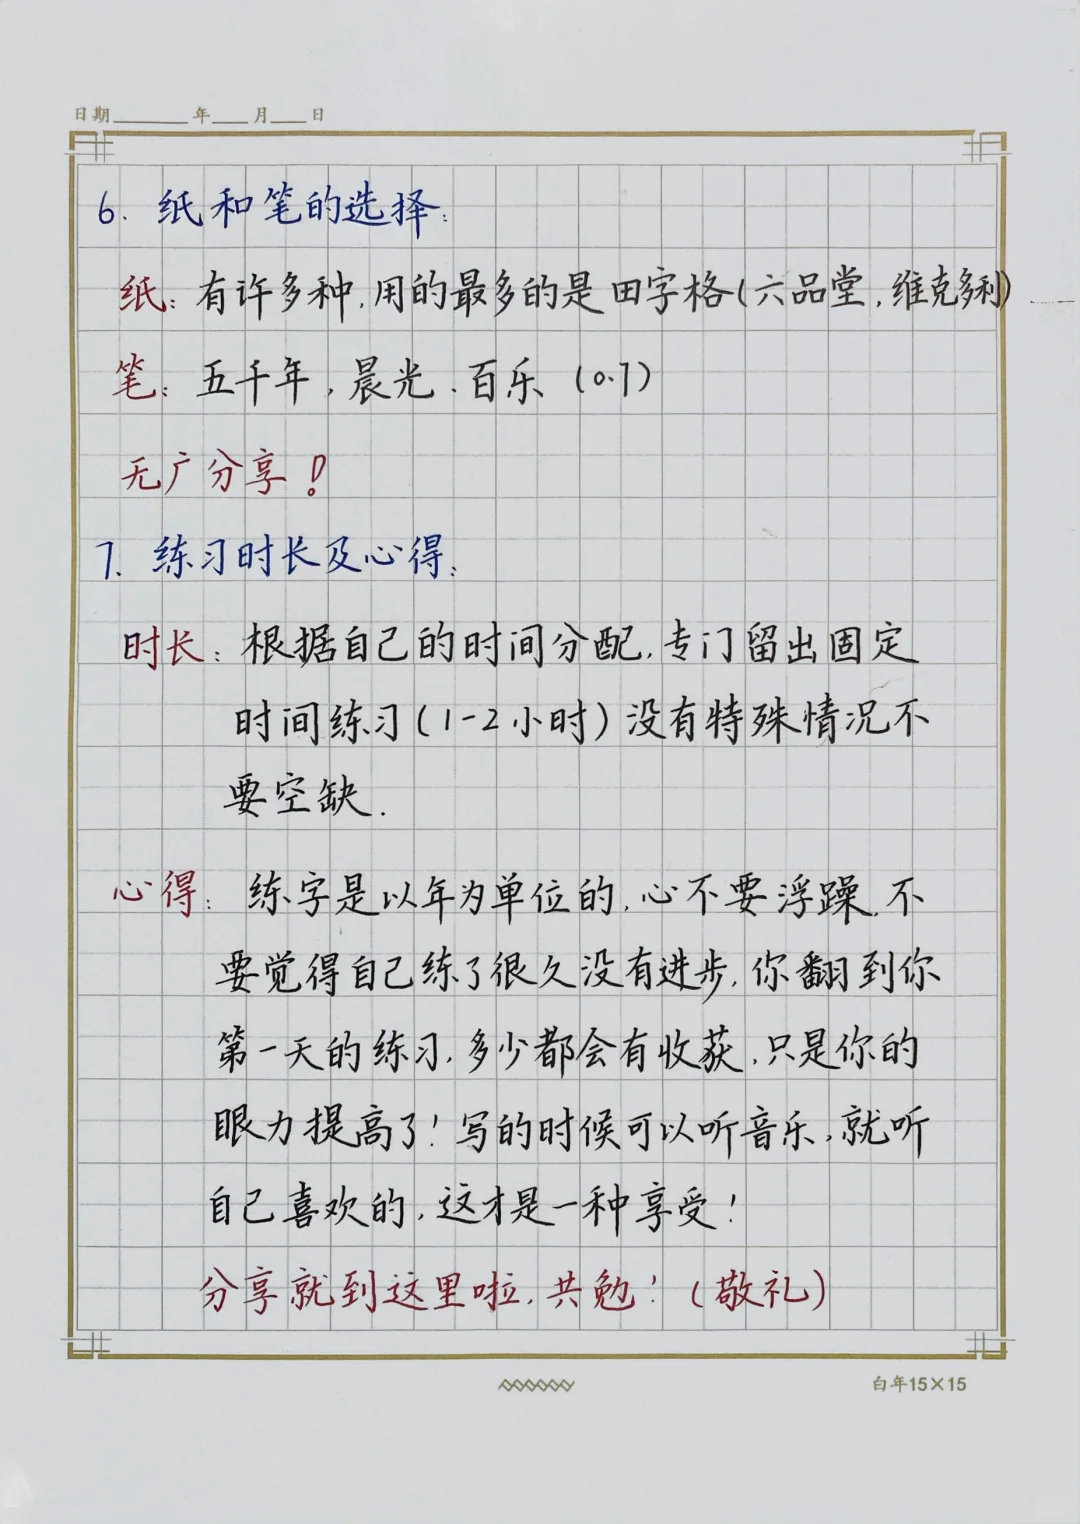 日期______年___月___日
6. 纸和笔的选择:
纸: 有许多种,用的最多的是田字格(六品堂,维克多利)
笔: 五千年,晨光、百乐(0.7)
无广分享!
7. 练习时长及心得:
时长: 根据自己的时间分配,专门留出固定
时间练习(1-2小时)没有特殊情况不
要空缺.
心得: 练字是以年为单位的,心不要浮躁,不
要觉得自己练了很久没有进步,你翻到你
第一天的练习,多少都会有收获,只是你的
眼力提高了!写的时候可以听音乐,就听
自己喜欢的,这才是一种享受!
分享就到这里啦,共勉!(敬礼)
白年15×15